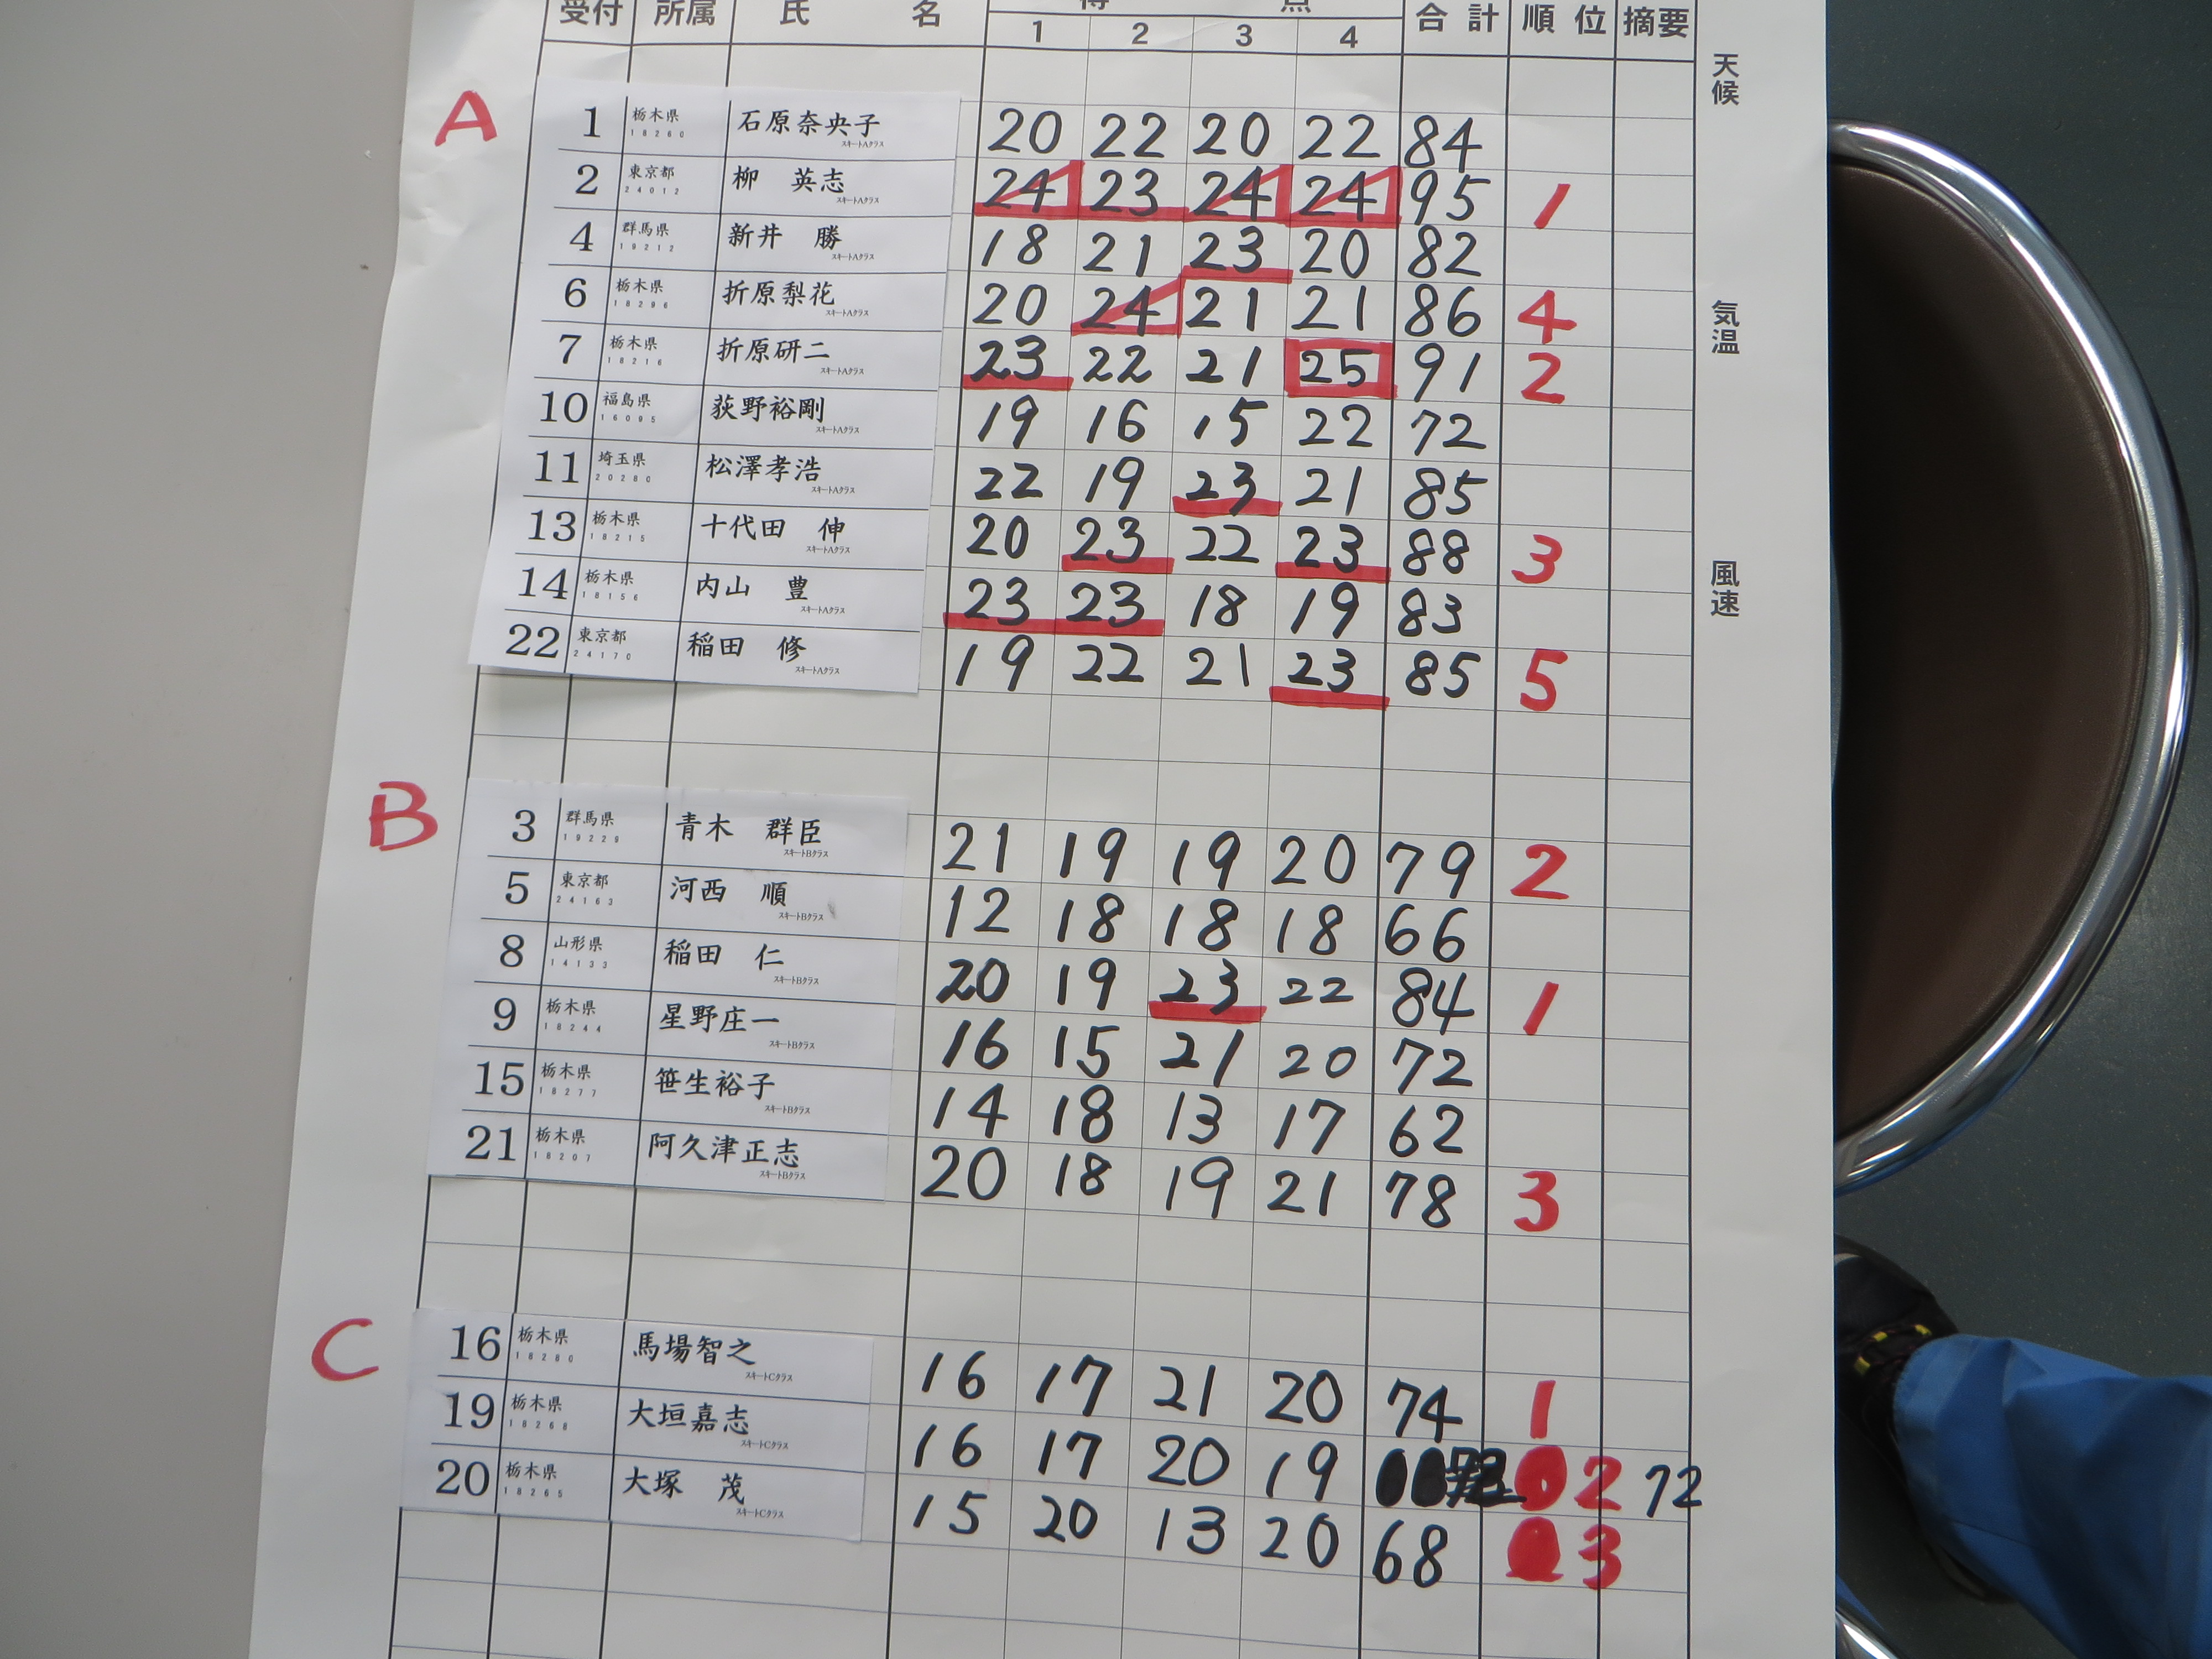 受付 所属 氏 名 得 点 合計 順位 摘要
1 2 3 4
天候
A
1 栃木県 石原奈央子 20 22 20 22 84
18260 スキートAクラス
2 東京都 柳 英志 24 23 24 24 95 1
24012 スキートAクラス
4 群馬県 新井 勝 18 21 23 20 82
19212 スキートAクラス
6 栃木県 折原梨花 20 24 21 21 86 4
18296 スキートAクラス
気温
7 栃木県 折原研二 23 22 21 25 91 2
18216 スキートAクラス
10 福島県 荻野裕剛 19 16 15 22 72
16095 スキートAクラス
11 埼玉県 松澤孝浩 22 19 23 21 85
20280 スキートAクラス
13 栃木県 十代田 伸 20 23 22 23 88 3
18215 スキートAクラス
風速
14 栃木県 内山 豊 23 23 18 19 83
18156 スキートAクラス
22 東京都 稲田 修 19 22 21 23 85 5
24170 スキートAクラス
B
3 群馬県 青木 群臣 21 19 19 20 79 2
19229 スキートBクラス
5 東京都 河西 順 12 18 18 18 66
24163 スキートBクラス
8 山形県 稲田 仁 20 19 23 22 84 1
14133 スキートBクラス
9 栃木県 星野庄一 16 15 21 20 72
18244 スキートBクラス
15 栃木県 笹生裕子 14 18 13 17 62
18277 スキートBクラス
21 栃木県 阿久津正志 20 18 19 21 78 3
18207 スキートBクラス
C
16 栃木県 馬場智之 16 17 21 20 74 1
18280 スキートCクラス
19 栃木県 大垣嘉志 16 17 20 19 2 72
18268 スキートCクラス
20 栃木県 大塚 茂 15 20 13 20 68 3
18265 スキートCクラス